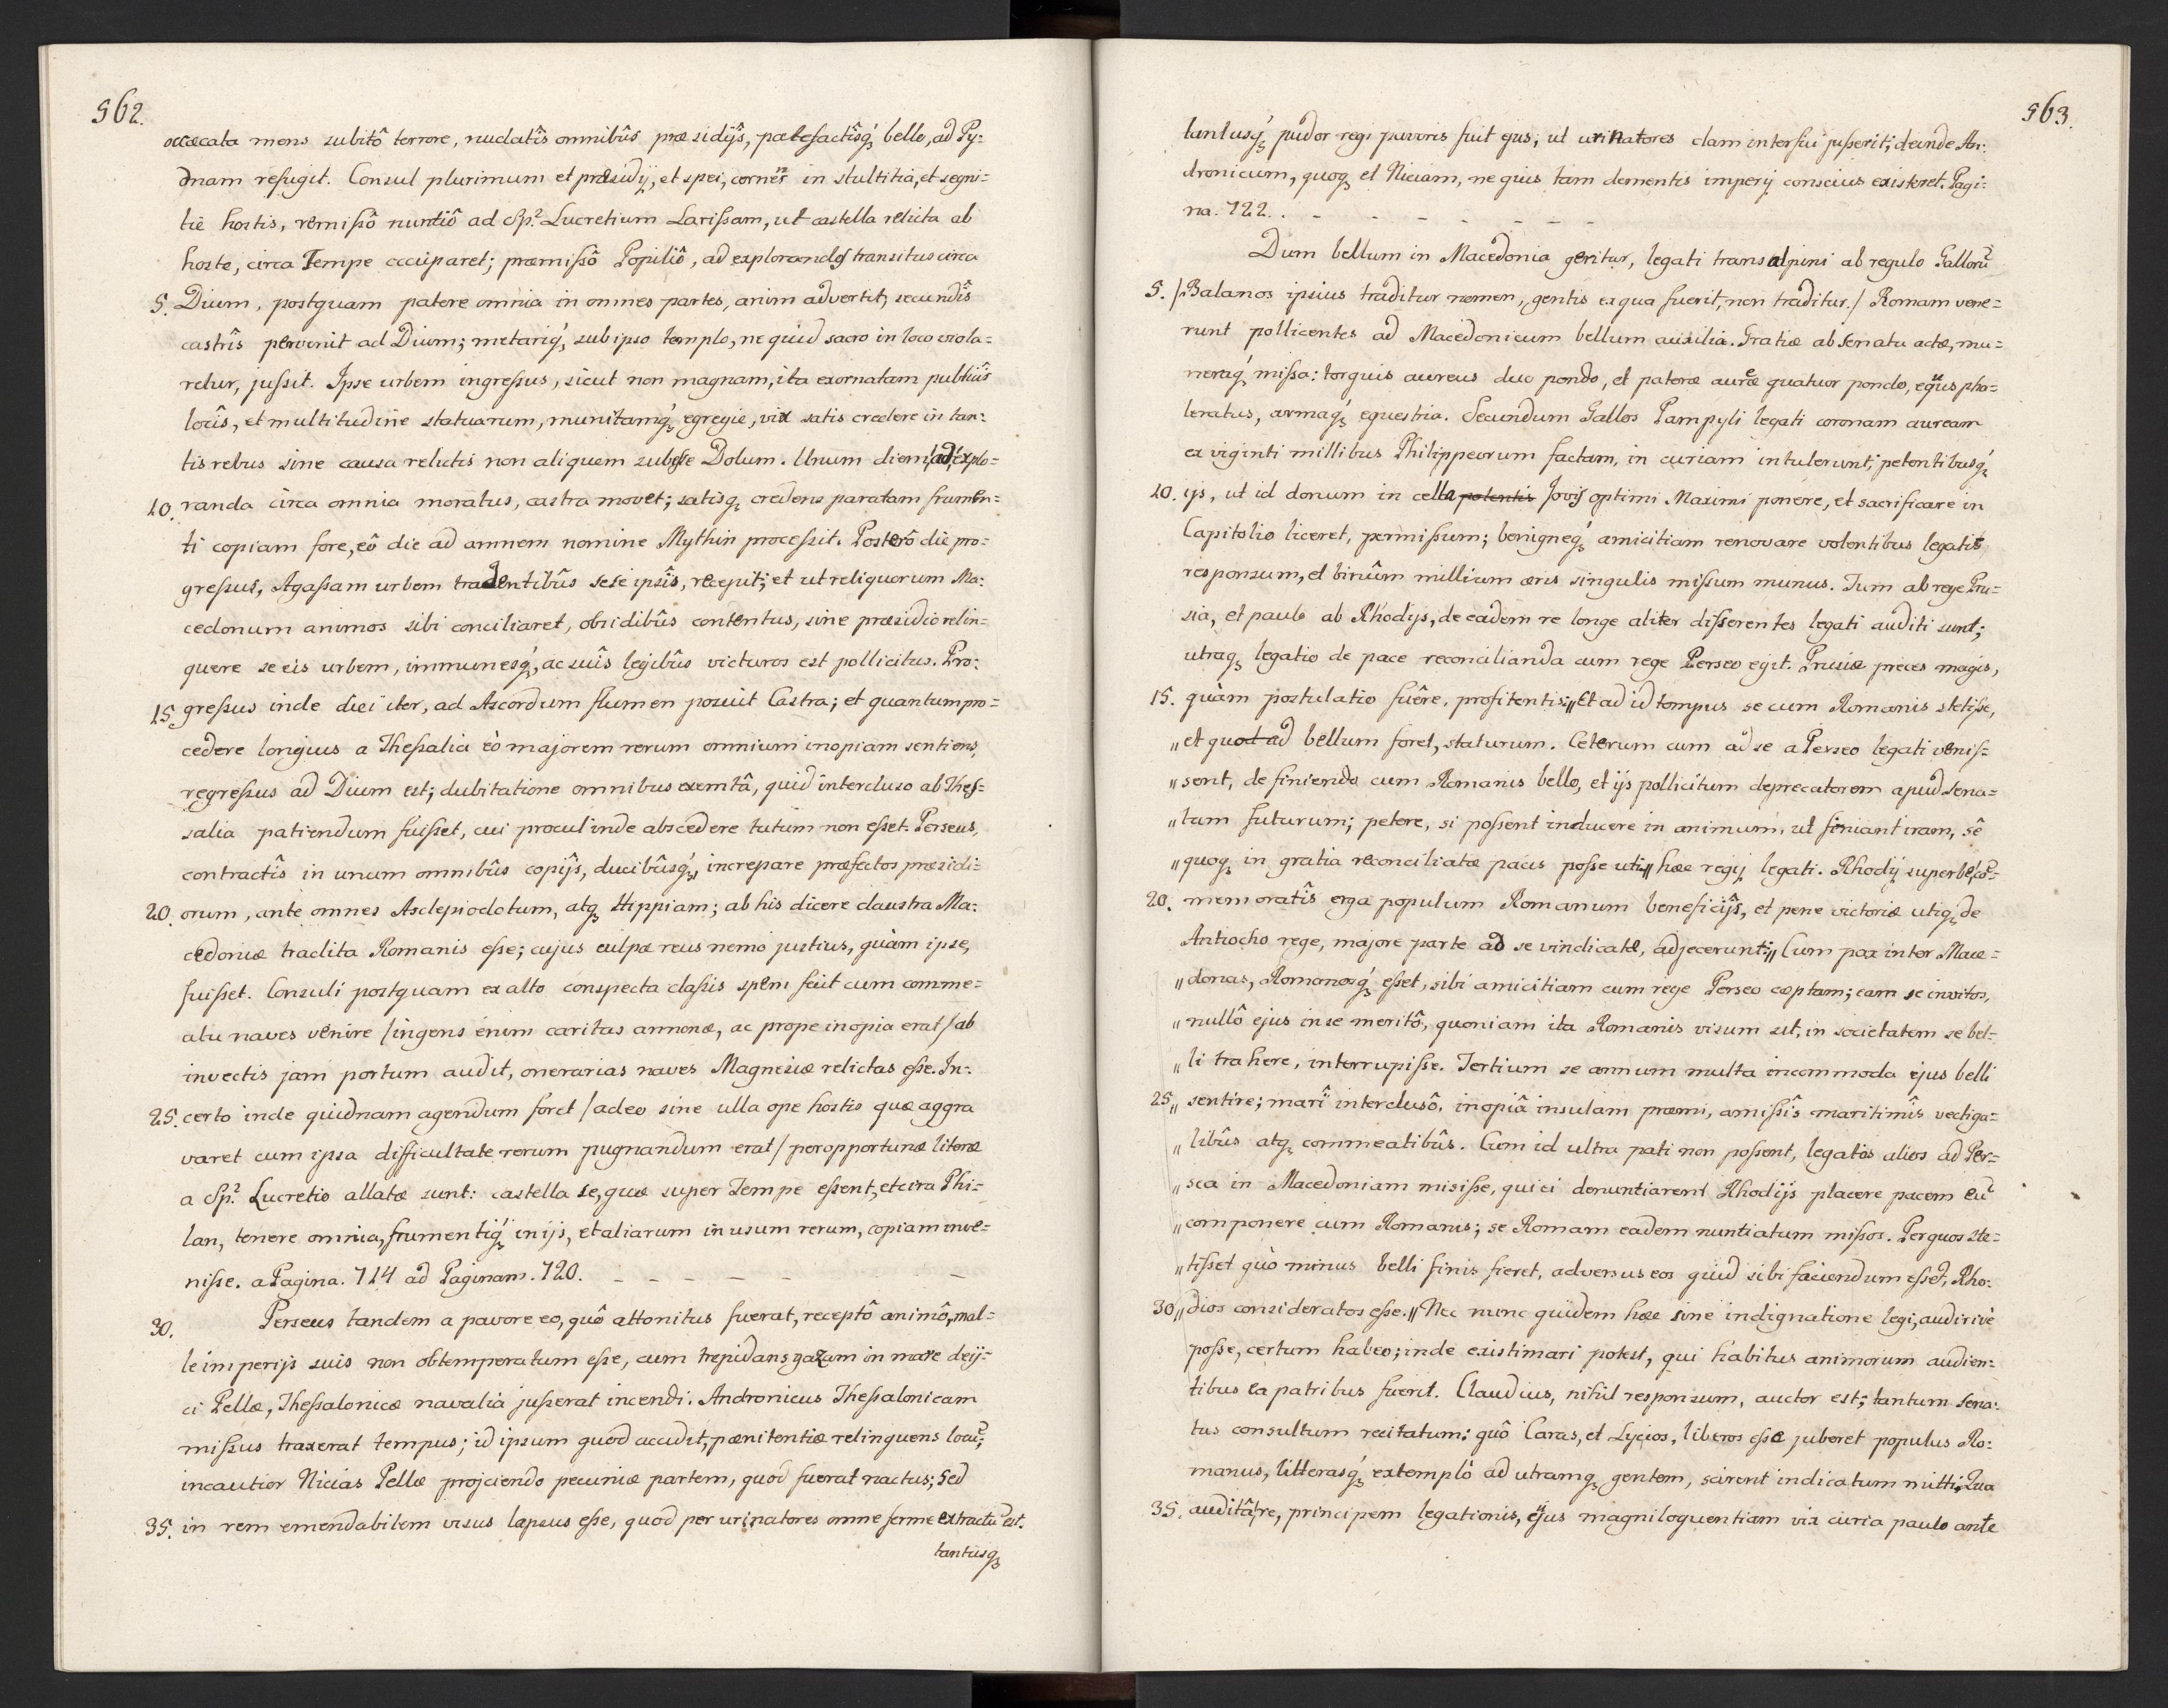 562.
occæcata mens subitô terrore, nudatîs omnibûs præsidijs, patefactîsq́ꝫ bello, ad Py:
dnam refugit. Consul plurimum et præsidij, et spei, cernens in stultitia, et segni-
tie hostis, remißô nuntiô ad Sp? Lucretium Larißam, ut castella relicta ab
hoste, circa Tempe occuparet; præmißô Popiliô, ad explorandos transitus circa
5. Dium, postquam patere omnia in omnes partes, anim advertit, secundis
castrîs pervenit ad Dium; metariq́ꝫ, sub ipso templo, ne quid sacro in loco viola=
retur, jußit. Ipse urbem ingreßus, sicut non magnam, ita exornatam publicîs
locîs, et multitudine statuarum, munitamq́ꝫ egregie, vix satis credere in tan:
tis rebus sine causa relictis non aliquem subeße Dolum. Unum diem, ad explo=
10. randa circa omnia moratus, castra movet; satisqꝫ credens paratam frumen-
ti copiam fore, eô die ad amnem nomine Mythin proceßit. Posterô die pro=
greßus, Agaßam urbem tradentibûs sese ipsîs, recepit; et ut reliquorum Ma:
cedonum animos sibi conciliaret, obsidibûs contentus, sine præsidio relin=
quere se eis urbem, immunesq́ꝫ, ac suîs legibûs victuros est pollicitus. Pro:
15. greßus inde diei iter, ad Ascordum flumen posuit Castra; et quantum pro=
cedere longius a Theßalia eò majorem rerum omnium inopiam sentiens,
regreßus ad Dium est; dubitatione omnibus exemtâ, quid intercluso ab Thes=
salia patiendum fuißet, cui procul inde abscedere tutum non eßet. Perseus,
contractîs in unum omnibûs copijs, ducibûsq́ꝫ, increpare præfectos præsidi=
20. orum, ante omnes Asclepiodotum, atqꝫ Hippiam; ab his dicere claustra Ma:
cedoniæ tradita Romanis eße; cujus culpæ reus nemo justius, quàm ipse,
fuißet. Consuli postquam ex alto conspecta claßis spem fecit cum comme=
atu naves venire /ingens enim caritas annonæ, ac prope inopia erat/ ab
invectis jam portum audit, onerarias naves Magnesiæ relictas eße. In:
25. certo inde quidnam agendum foret /adeo sine ulla ope hostis quæ aggra
varet cum ipsa difficultate rerum pugnandum erat/ peropportunæ literæ
a Sp? Lucretio allatæ sunt: castella se, quæ super Tempe eßent, et circa Phi=
lan, tenere omnia, frumentiq́ꝫ in ijs, et aliarum in usum rerum, copiam inve=
niße. a Pagina. 714 ad Paginam. 720. _ _ _ _ _ _
30. Perseus tandem a pavore eo, quô attonitus fuerat, receptô animô, mal=
le imperijs suis non obtemperatum eße, cum trepidans gazam in mare deij=
ci Pellæ, Theßalonicæ navalia jußerat incendi. Andronicus Theßalonicam
mißus traxerat tempus; id ipsum quod accidit, pænitentiæ relinquens locu͂;
incautior Nicias Pellæ projciendo pecuniæ partem, quod fuerat nactus; Sed
35. in rem emendabilem visus lapsus eße, quod per urinatores omne ferme extractu͂ est.
tantusqꝫ
563.
tantusq́ꝫ pudor regi pavoris fuit ejus, ut urinatores clam interfici jußerit; deinde An:
dronicum, quoqꝫ et Niciam, ne quis tam dementis imperij conscius existeret. Pagi:
na. 722. . _ _ _ _ _ _ _
Dum bellum in Macedonia geritur, legati transalpini ab regulo Galloru͂
5. /Balanos ipsius traditur nomen, gentis ex qua fuerit, non traditur./ Romam vene=
runt pollicentes ad Macedonicum bellum auxilia. Gratiæ ab Senatu actæ, mu=
neraq́ꝫ mißa: torquis aureus duo pondo, et pateræ aureæ quatuor pondo, equus pha=
leratus, armaq́ꝫ equestria. Secundum Gallos Pampyli legati coronam auream
ex viginti millibus Philippeorum factam, in curiam intulerunt; petentibusq́ꝫ
10. ijs, ut id donum in cella potentis Jovis optimi Maximi ponere, et sacrificare in
Capitolio liceret, permißum; benigneq́ꝫ amicitiam renovare volentibus legatis
responsum, et binûm millium æris singulis mißum munus. Tum ab rege Pru=
sia, et paulo ab Rhodijs, de eadem re longe aliter dißerentes legati auditi sunt;
utraqꝫ legatio de pace reconcilianda cum rege Perseo egit. Prusiæ preces magis,
15. quàm postulatio fuêre, profitentis: „Et ad id tempus se cum Romanis stetiße,
„et quod ad bellum foret, staturum. Ceterum cum ad se a Perseo legati venis=
„sent, de finiendo cum Romanis bello, et ijs pollicitum deprecatorem apud Sena=
„tum futurum; petere, si poßent inducere in animum, ut finiant iram, sê
„quoqꝫ in gratia reconciliatæ pacis poße uti„ hæc regij legati. Rhodij superbe, co͂=
20. memoratîs erga populum Romanum beneficijs, et pene victoriæ utiq́ꝫ de
Antiocho rege, majore parte ad se vindicatæ, adjecerunt: „Cum pax inter Mace=
„donas, Romanosq́ꝫ eßet, sibi amicitiam cum rege Perseo cœptam; eam se invitos,
„nullô ejus in se meritô, quoniam ita Romanis visum sit, in societatem se bel=
„li trahere, interrupiße. Tertium se annum multa incommoda ejus belli
25. „sentire; marî interclusô, inopiâ insulam premi, amißîs maritimîs vectiga=
„libûs atqꝫ commeatibûs. Cum id ultra pati non poßent, legatos alios ad Per=
„sea in Macedoniam misiße, qui ei denuntiarent Rhodijs placere pacem eu͂
„componere cum Romanis; se Romam eadem nuntiatum mißos. Per quos ste=
„tißet quò minus belli finis fieret, adversus eos quid sibi faciendum eßet, Rho:
30. „dios consideratos eße.„ Nec nunc quidem hæc sine indignatione legi, audirivè
poße, certum habeo; inde existimari potest, qui habitus animorum audien:
tibus ea patribus fuerit. Claudius, nihil responsum, auctor est; tantum Sena:
tus consultum recitatum: quô Caras, et Lycios, liberos eße juberet populus Ro:
manus, litterasq́ꝫ extemplò ad utramqꝫ gentem, scirent indicatum mitti; Qua
35. auditâ, re, principem legationis, ejus magniloquentiam vix curia paulo ante